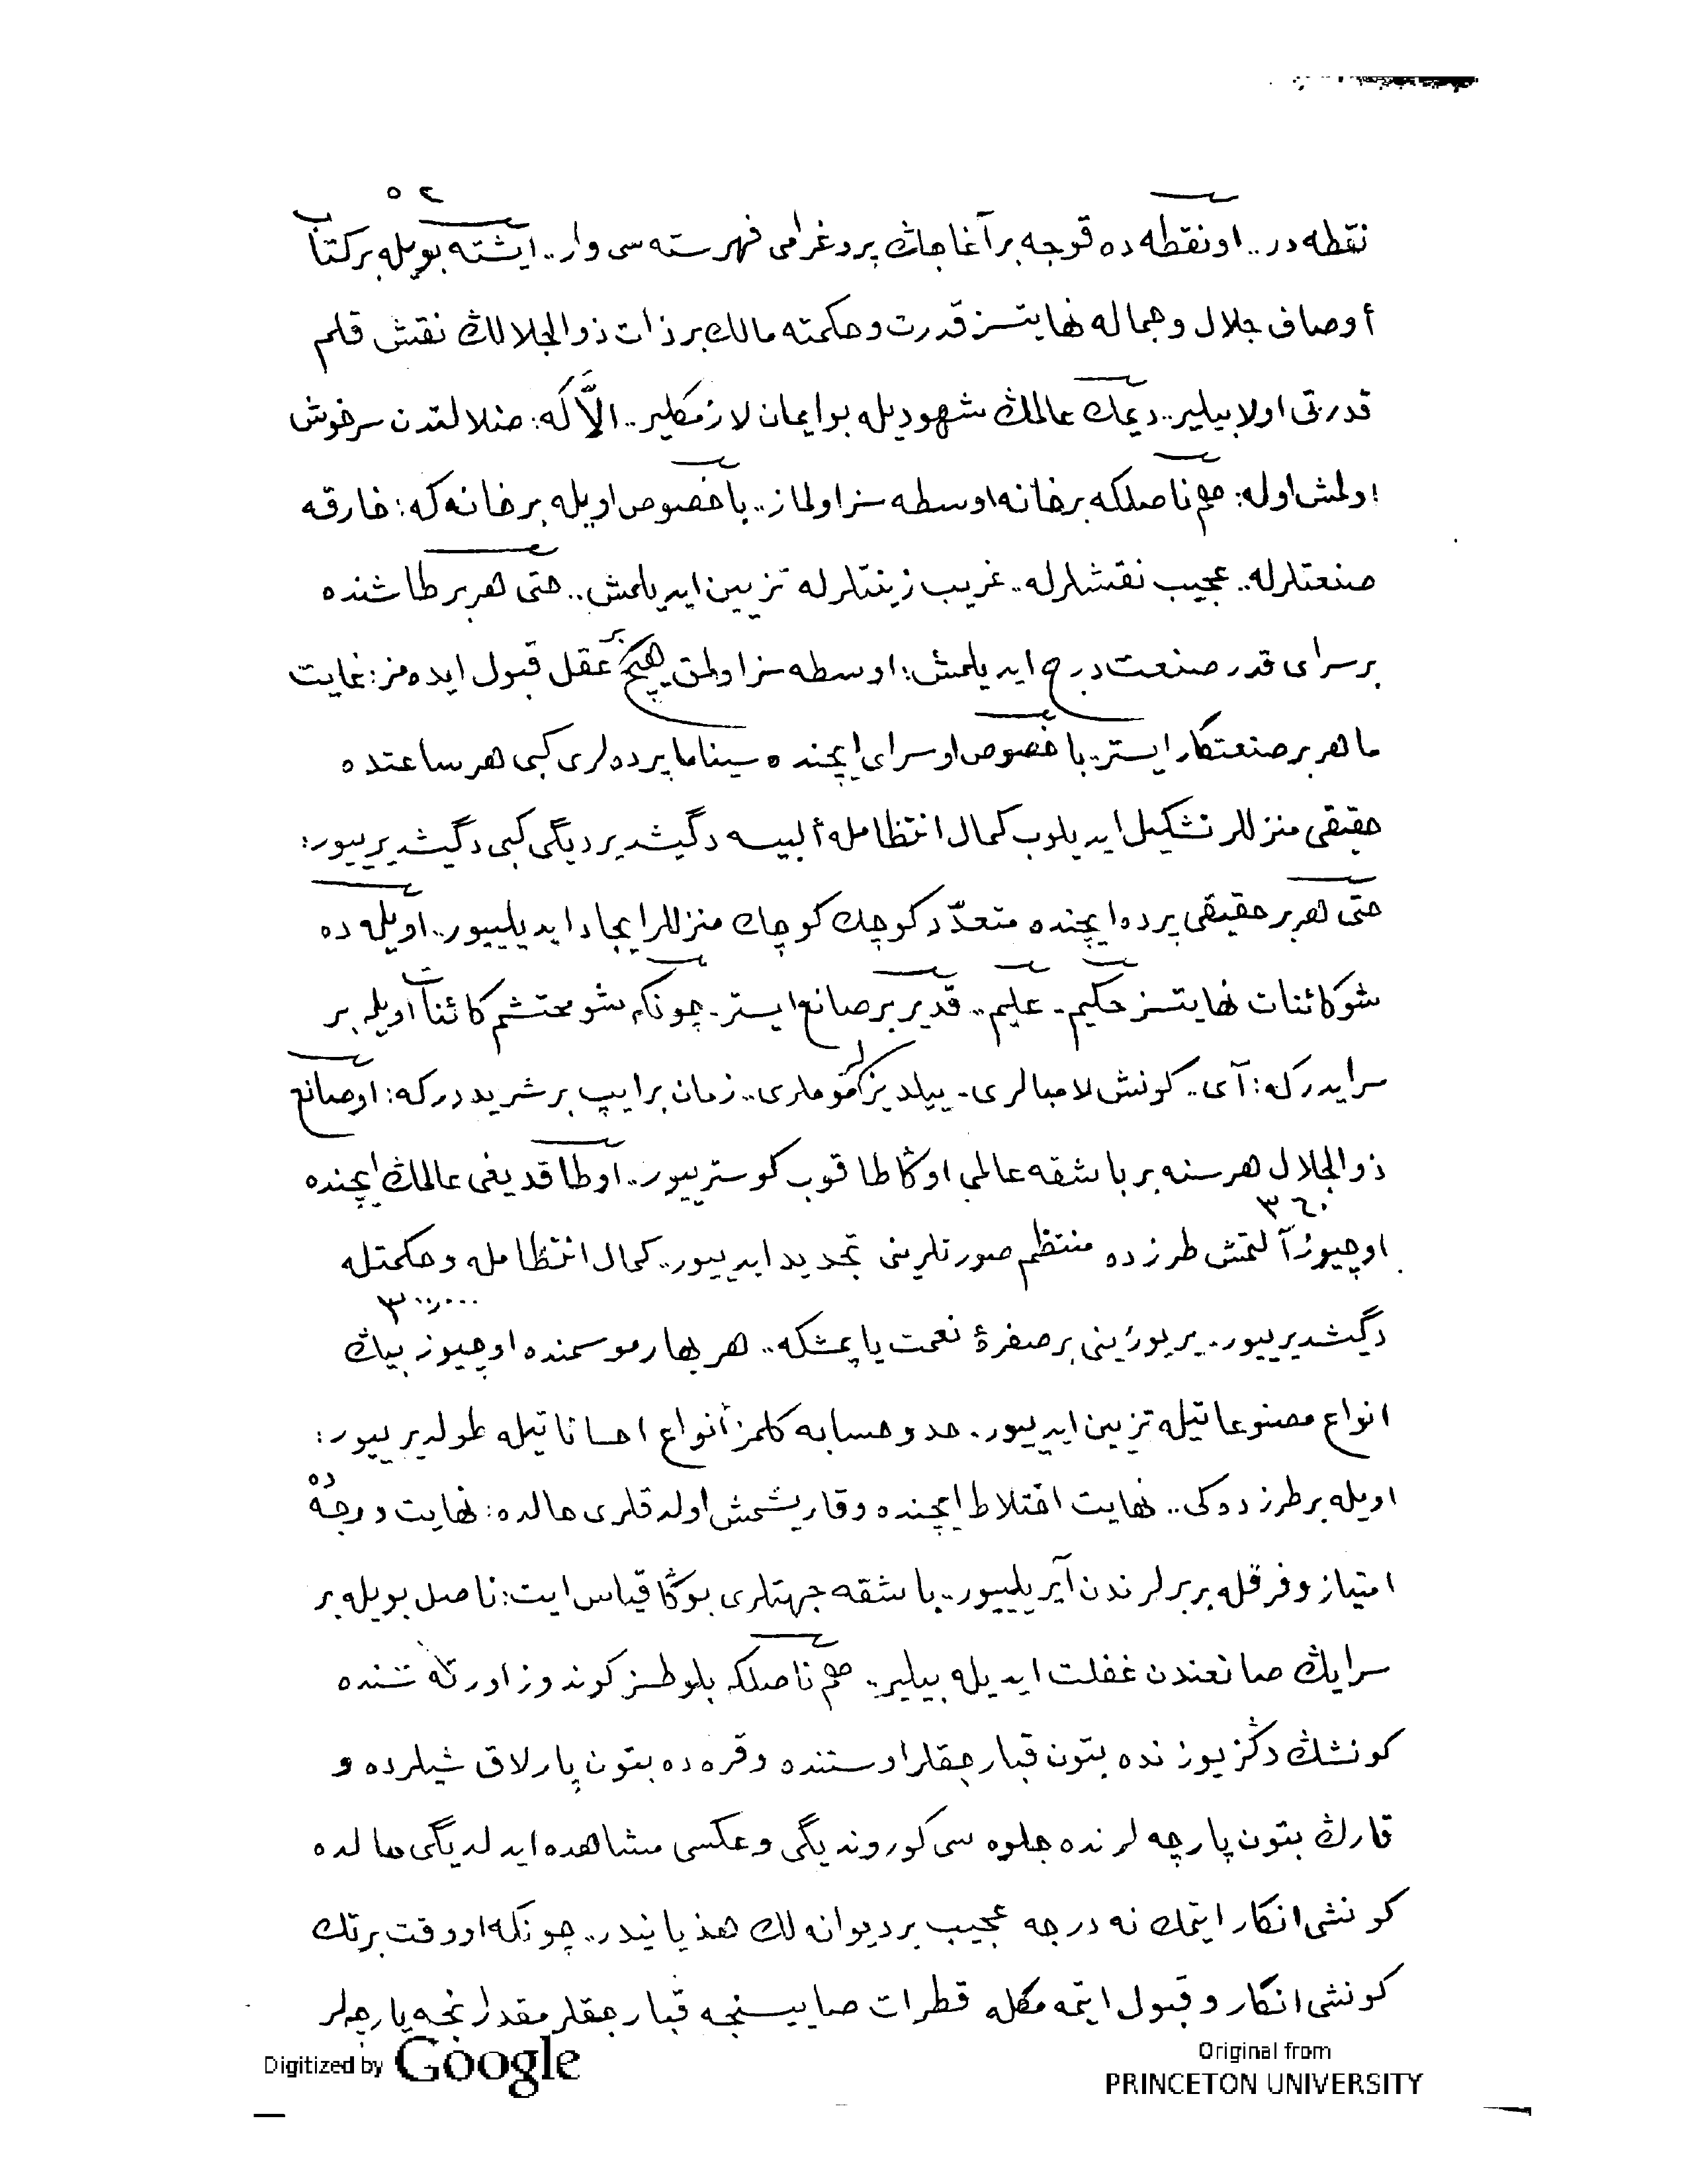 ٥٢
نقطه در.. او نقطه ده قوجه بر آغاجڭ پروغرامى فهرسته سى وار.. ايشته بويله بر كتاب
أوصاف جلال وجماله نهايتسز قدرت وحكمته مالك بر ذات ذو الجلالڭ نقش قلم
قدرتى اولابيلير.. ديمك عالمڭ شهوديله بو ايمان لازمكلير.. الاّ كه: ضلالتدن سرخوش
اولمش اوله: هم ناصلكه بر خانه اوسطه سز اولماز.. باخصوص اويله بر خانه كه: خارقه
صنعتلرله.. عجيب نقشلرله.. غريب زينتلرله تزيين ايديلمش.. حتى هر بر طاشنده
بر سراى قدر صنعت درج ايديلمش: اوسطه سز اولمق هيچ بر عقل قبول ايده مز: غايت
ماهر بر صنعتكار ايستر.. باخصوص او سراى ايچنده سيناما پرده لرى كبى هر ساعتده
حقيقى منزللر تشكيل ايديلوب كمال انتظامله ألبيسه دگيشديرديگى كبى دگيشديرييور:
حتّى هر بر حقيقى پرده ايچنده متعدّد كوچك كوچك منزللر ايجاد ايديلييور.. اويله ده
شو كائنات نهايتسز حكيم.. عليم.. قدير بر صانع ايستر.. چونكه شو محتشم كائنات اويله بر
سرايدركه: آى.. كونش لامبالرى.. ييلديزلر موملرى.. زمان بر ايپ بر شريددركه: او صانع
ذو الجلال هر سنه بر باشقه عالمى اوڭا طاقوب كوسترييور.. او طاقديغى عالمڭ ايچنده
٣٦٠
اوچيوز آلتمش طرزده منتظم صورتلرينى تجديد ايدييور.. كمال انتظامله وحكمتله
٣٠٠,٠٠٠
دگيشديرييور.. ير يوزينى بر صفرۀ نعمت ياپمشكه.. هر بهار موسمنده اوچيوز بيڭ
انواع مصنوعاتيله تزيين ايدييور.. حد وحسابه كلمز أنواع احساناتيله طولديرييور:
اويله بر طرزده كى.. نهايت اختلاط ايچنده وقاريشمش اولدقلرى حالده: نهايت درجه ده
امتياز وفرقله بربرلرندن آيريلييور.. باشقه جهتلرى بوڭا قياس ايت: ناصل بويله بر
سرايڭ صانعندن غفلت ايديله بيلير.. هم ناصلكه بلوطسز كوندوز اورته سنده
كونشڭ دڭز يوزنده بتون قبارجقلر اوستنده وقره ده بتون پارلاق شيلرده و
قارڭ بتون پارچه لرنده جلوه سى كوروندیگى وعكسى مشاهده ايدلديگى حالده
كونشى انكار ايتمك نه درجه عجيب بر ديوانه لك هذيانيدر.. چونكه او وقت بر تك
كونشى انكار و قبول ايتمه مكله قطرات صاييسنجه قبارجقلر مقدارنجه پارچه لر
Digitized by Google
Original from
PRINCETON UNIVERSITY